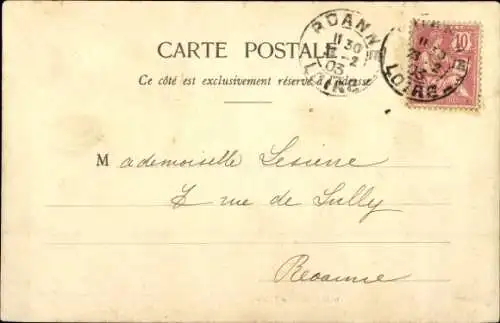 CARTE POSTALE
Ce côté est exclusivement réservé à l'adresse
ROANNE
11 30
E
-2
03
LOIRE
10
LOIRE
Mademoiselle
rue de Sully
Roanne